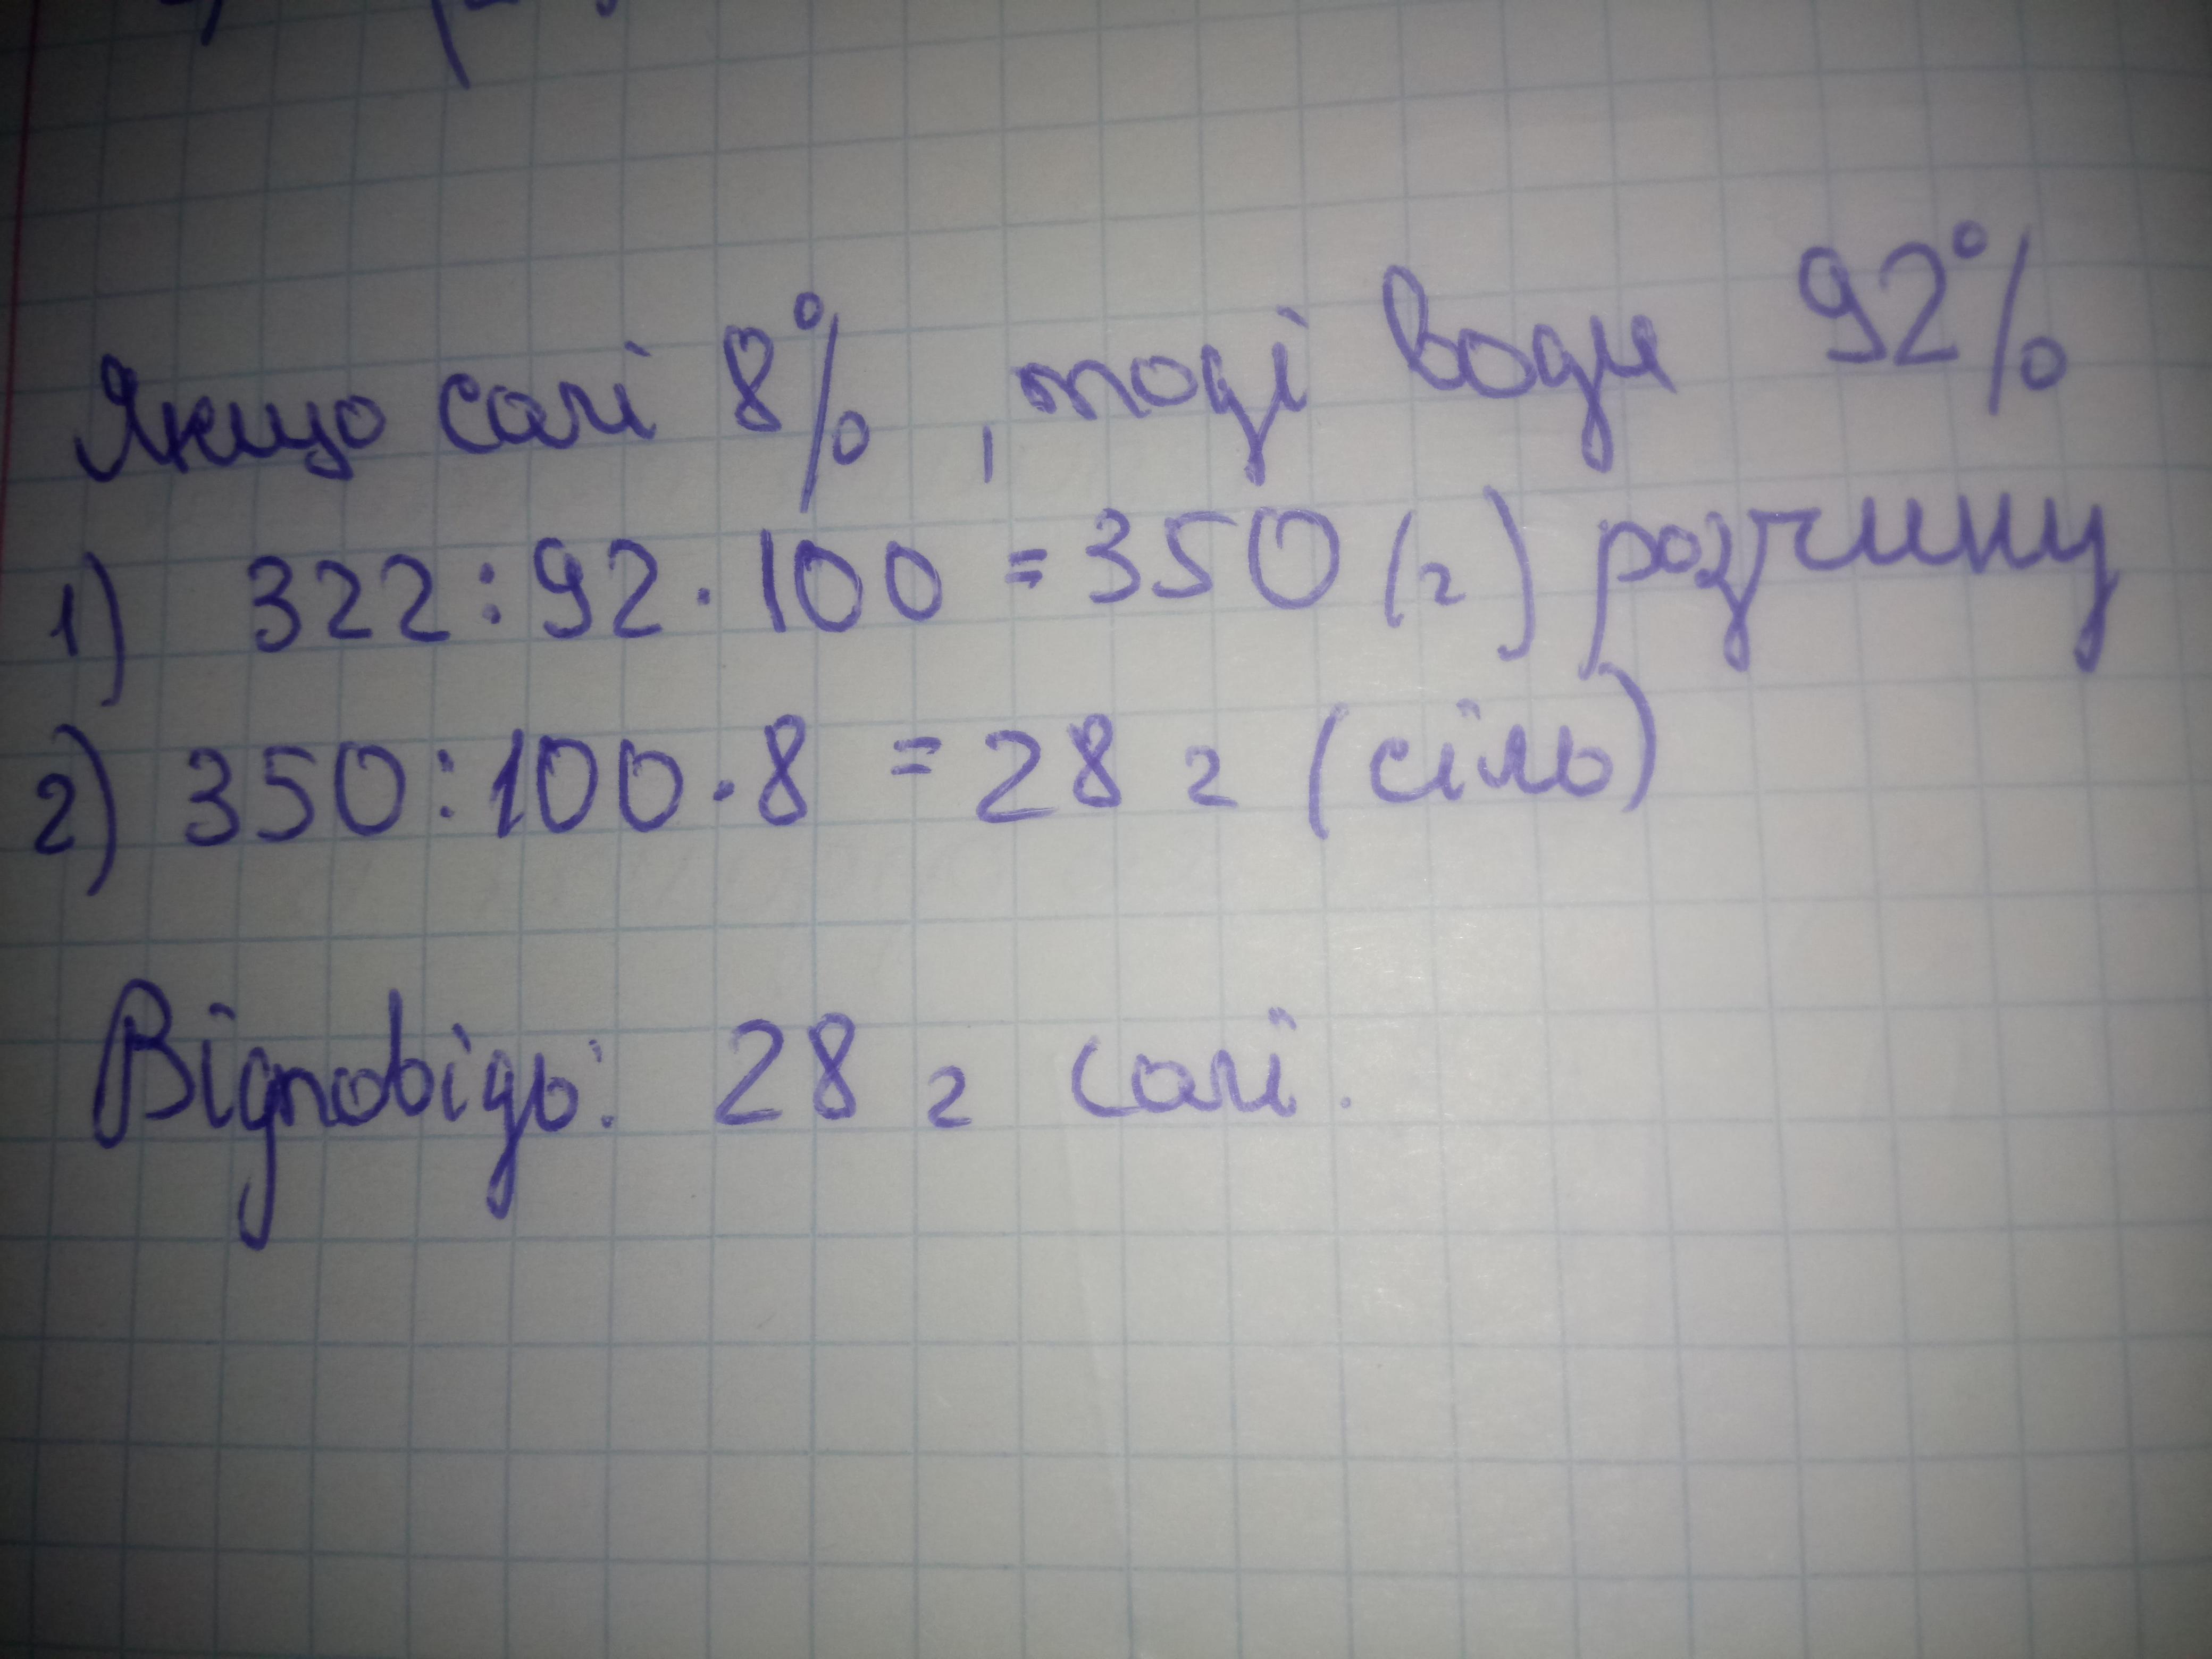 Якщо солі 8%, тоді води 92%
1) 322:92·100=350 (г) розчину
2) 350:100·8 = 28 г (сіль)
Відповідь: 28 г солі.